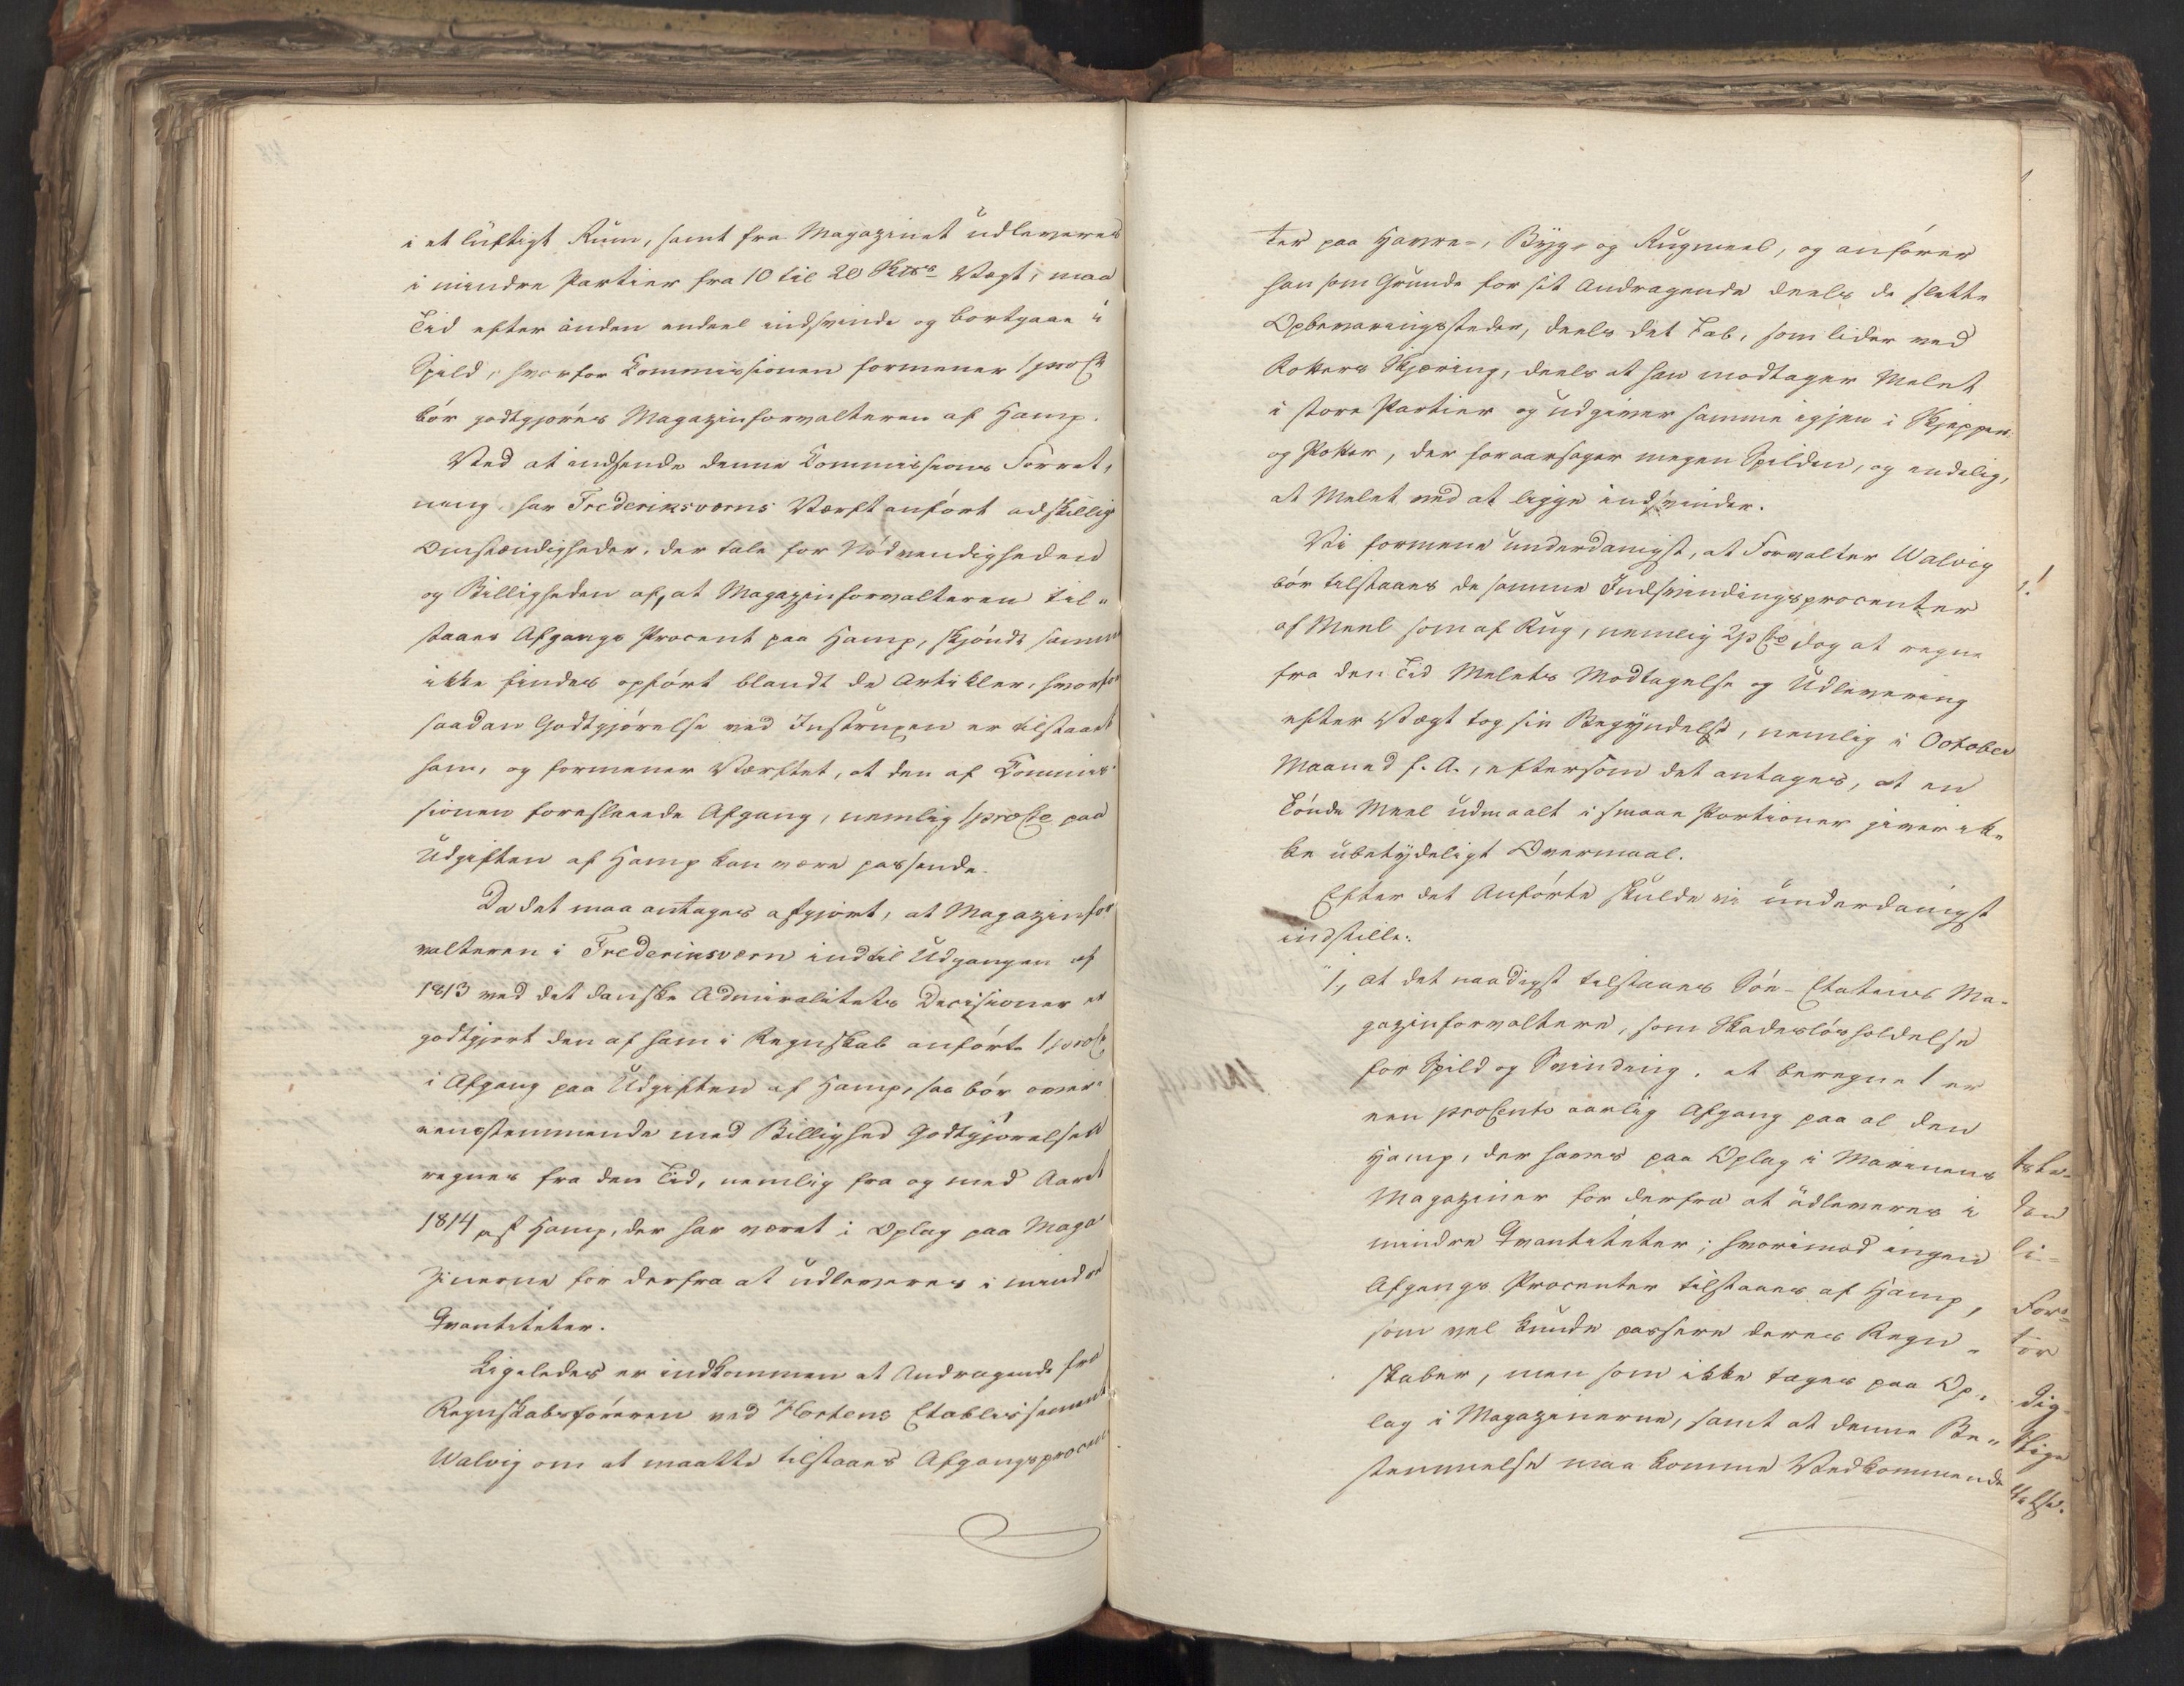 i et luftigt Rum, samt fra Magazinet udleveres
i mindre Partier fra 10 til 20 Vægt, maa
Tid efter anden endeel indsvinde og bortgaae i
Spild, hvorfor Commissionen formener 1 proCt
bør godtgjøres Magazinforvalteren af Hamp.
Ved at indsende denne Commissions Forret-
ning, har Frederiksværns Værft anført adskillige
Omstændigheder, der tale for Nødvendigheden
og Billigheden af, at Magazinforvalteren til-
staaes Afgangs Procent paa Hamp, skjøndt samme
ikke findes opført blandt de Artikler, hvorfor
saadan Godtgjørelse ved Instruxen er tilstaaet
ham, og formener Værftet, at den af Commis-
sionen foreslaaede Afgang, nemlig 1 proCto paa
Udgiften af Hamp kan være passende.
Da det maa antages afgjort, at Magazinfor
valteren i Frederiksværn indtil Udgangen af
1813 ved det danske Admiralitets Decisioner er
godtgjort den af ham i Regnskab anførte 1 proCt
i Afgang paa Udgiften af Hamp, saa bør over-
eensstemmende med Billighed Godtgjørelsen
regnes fra den Tid, nemlig fra og med Aaret
1814 af Hamp, der har været i Oplag paa Maga-
zinerne for derfra at udleveres i mindre
Qvantiteter.
Ligeledes er indkommen et Andragende fra
Regnskabsføreren ved Hortens Etablissement
Walvig om at maatte tilstaaes Afgangsprocen
ter paa Havre-, Byg- og Rugmeel, og anfører
han som Grunde for sit Andragende deels de slette
Opbevaringssteder, deels det Tab, som lider ved
Rotters Skjæring, deels at han modtager Melet
i store Partier og udgiver samme igjen i Skjepper
og Potter, der foraarsager megen Spilden, og endelig,
at Melet ved at ligge indsvinder.
Vi formene underdanigst, at Forvalter Walvig
bør tilstaaes de samme Indsvindingsprocenter
af Meel som af Rug, nemlig 2 pCto dog at regne
fra den Tid Melets Modtagelse og Udlevering
efter Vægt tog sin Begyndelse, nemlig i October
Maaned f. A., eftersom det antages, at en
Tønde Meel udmaalt i smaae Portioner giver ik-
ke ubetydeligt Overmaal.
Efter det Anførte skulde vi underdanigst
indstille:
"1, at det naadigst tilstaaes Søe-Etatens Ma-
gazinforvaltere, som Skadesløsholdelse
for Spild og Svinding, at beregne 1 er
een proCento aarlig Afgang paa al den
Hamp, der haves paa Oplag i Marinens
Magaziner for derfra at udleveres i
mindre Qvantiteter; hvorimod ingen
Afgangs Procenter tilstaaes af Hamp,
som vel kunde passere deres Regn-
skaber, men som ikke tages paa Op-
lag i Magazinerne, samt at denne Be-
stemmelse maa komme Vedkommende